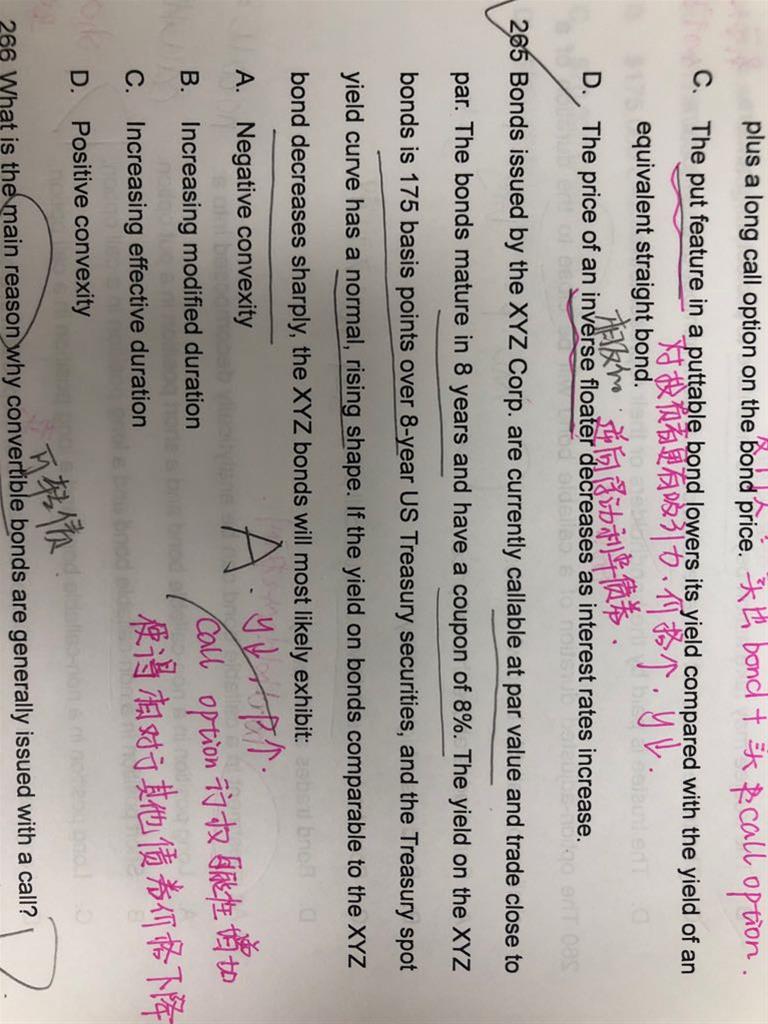 plus a long call option on the bond price. 买出 bond + 买 call option.
C. The put feature in a puttable bond lowers its yield compared with the yield of an
equivalent straight bond. 对投资者更有吸引力. 价格↑. y↓.
D. The price of an inverse floater decreases as interest rates increase.
逆向浮动利率债券.
265 Bonds issued by the XYZ Corp. are currently callable at par value and trade close to
par. The bonds mature in 8 years and have a coupon of 8%. The yield on the XYZ
bonds is 175 basis points over 8-year US Treasury securities, and the Treasury spot
yield curve has a normal, rising shape. If the yield on bonds comparable to the XYZ
bond decreases sharply, the XYZ bonds will most likely exhibit:
A. Negative convexity
B. Increasing modified duration
C. Increasing effective duration
D. Positive convexity
A. y↓ P↑.
call option 行权可能性增加
使得相对于其他债券价格下降
可转债
266 What is the main reason why convertible bonds are generally issued with a call?